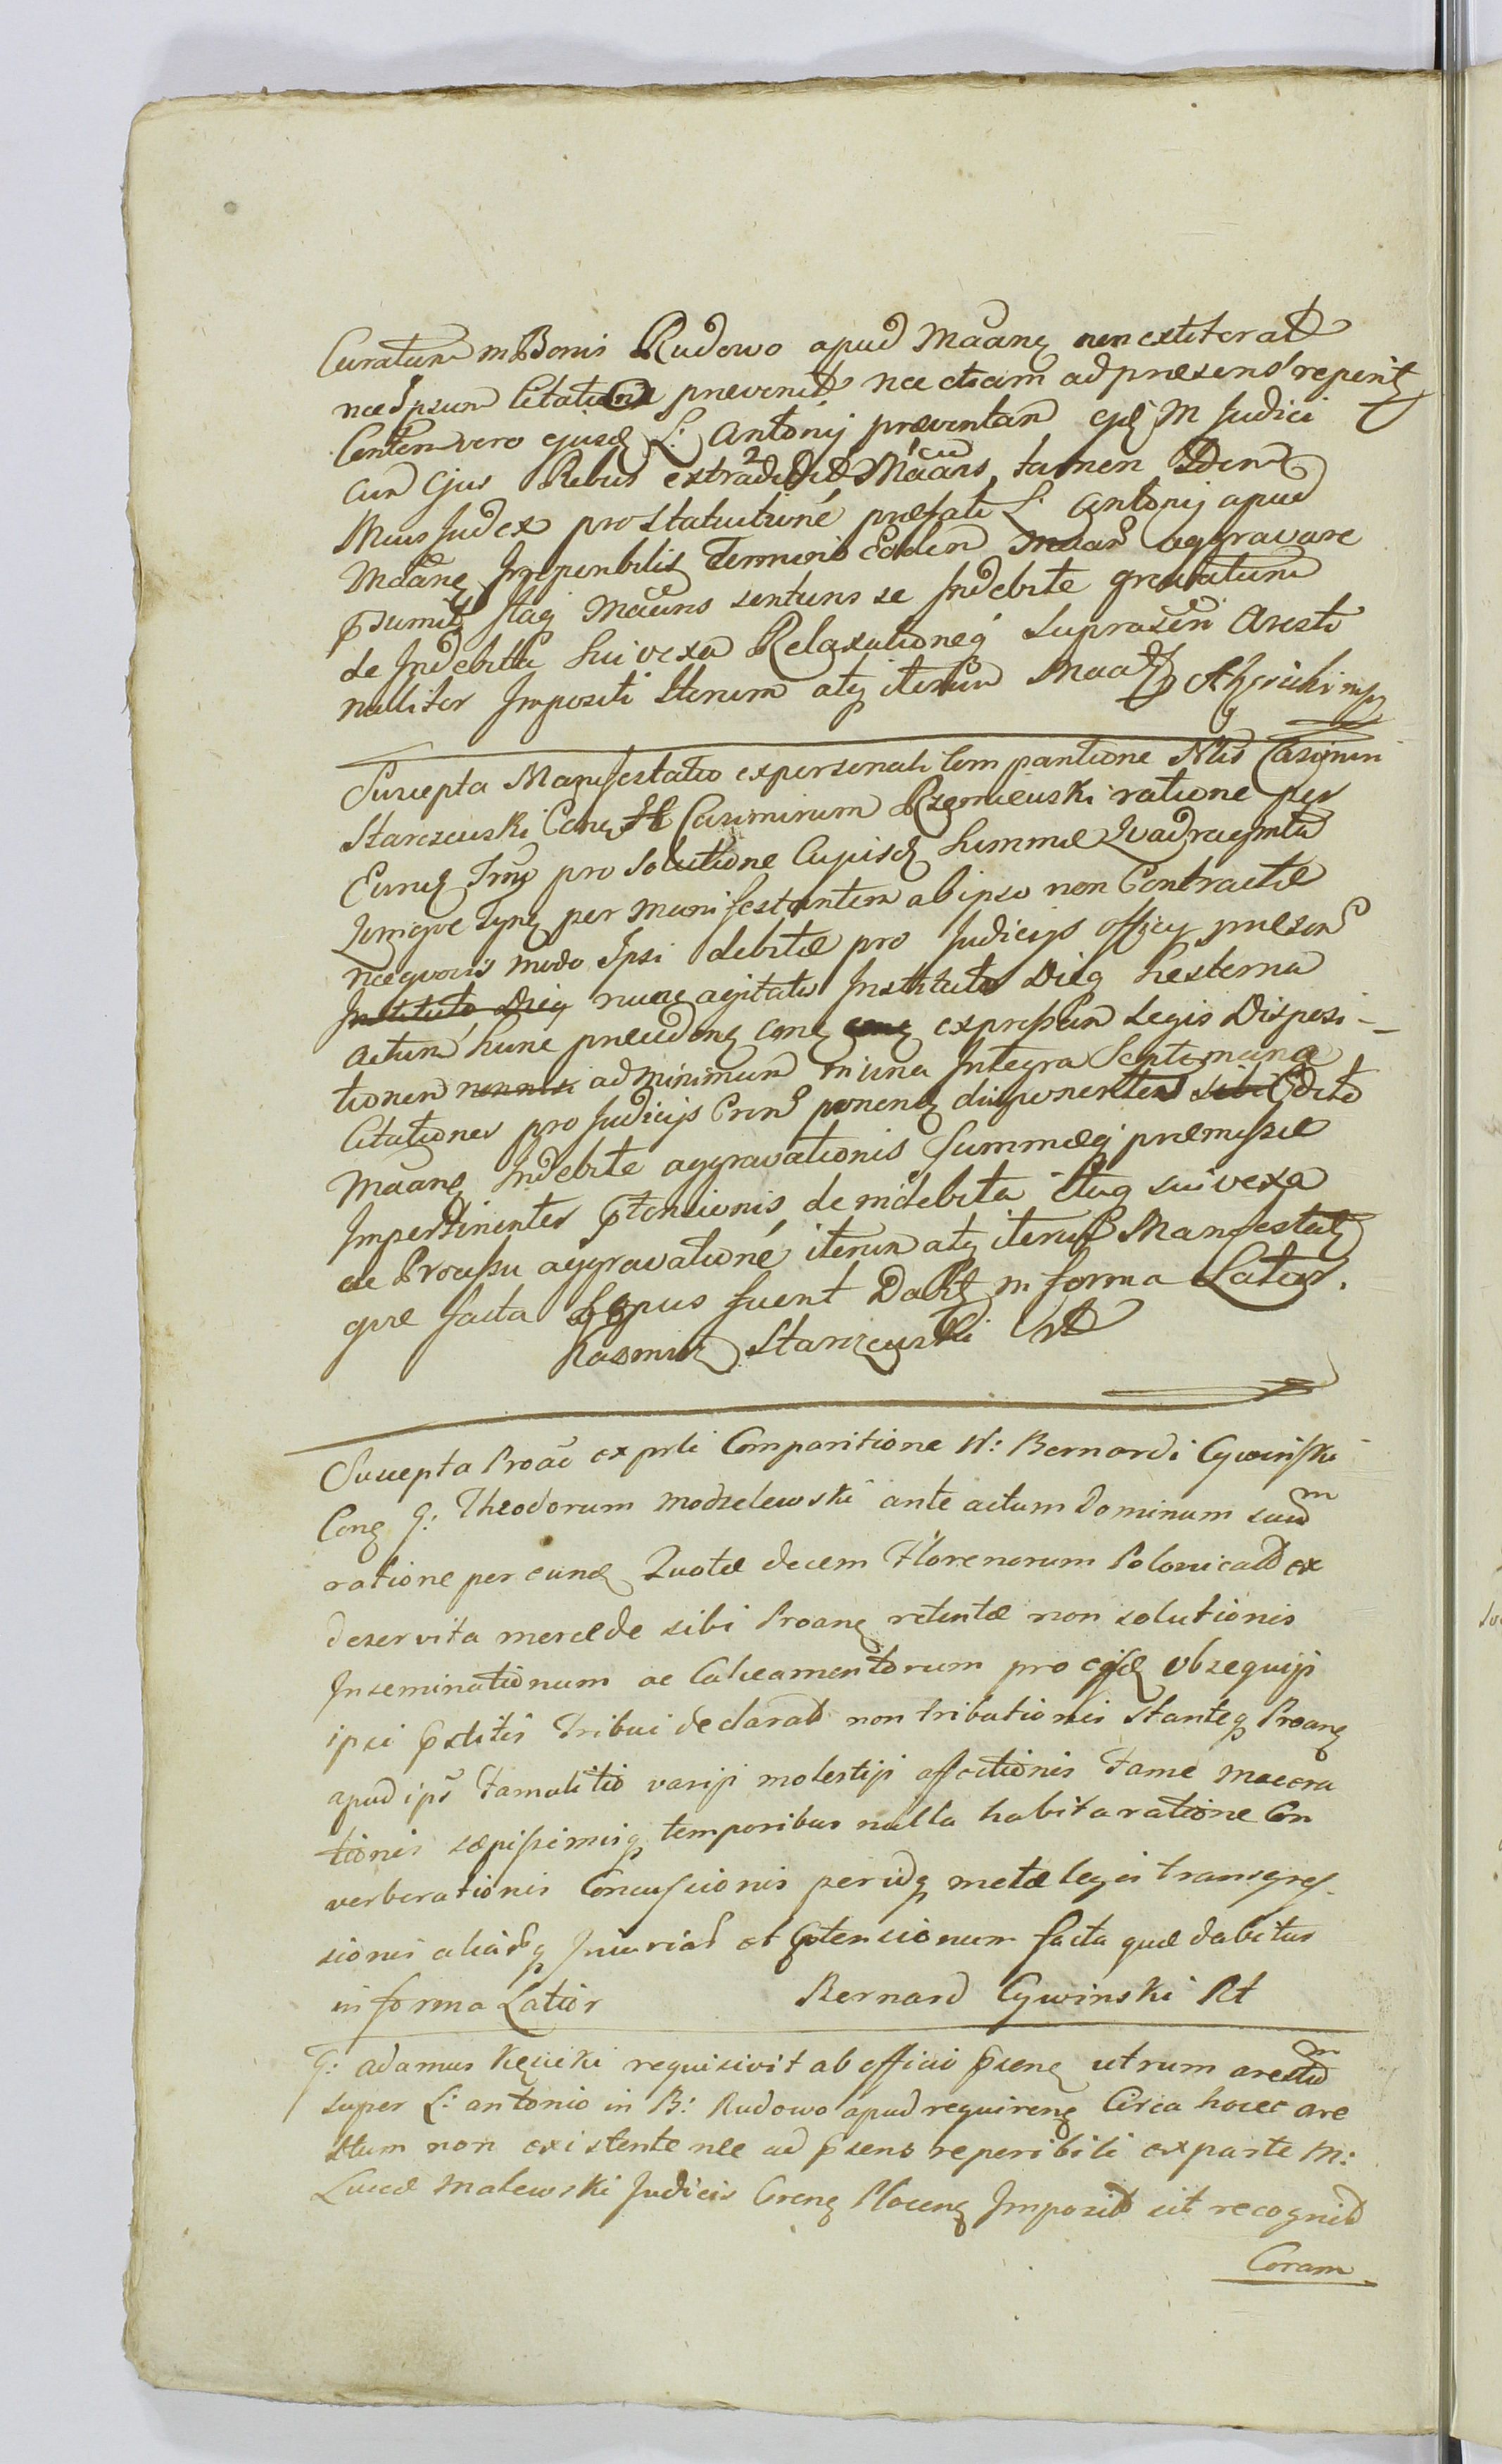 Curatum in Bonis Rudowo apud Maang non extiterat
nec Ipsum Citatione prevenit nec etiam ad praesens reperit
vero ejusd L: Antonij praeventam ejd M Judici
cum Ejus Rebus extradidit Maans, tamen Idem
Mcus Judex pro statuitione praefati L: Antonij apud
Maang Irreperibilis Termino Eadem aggravare
Itaq Maans sentiens se Indebite gravatum
de Indebita sui vexa Relaxationeq suprascri Aresti
nulliter Impositi Iterum atq iterum Maatr
Suscepta Manifestatio ex personali Comparitione Nlis Casimiri
Starczewski Cong Casimirum ratione per
Eund pro solutione Cujusd Summae Quadraginta
Quinque per Manifestantem ab ipso non Contractae
nec quovis modo Ipsi debitae pro Judicijs officij praesen
Instituto Dieq nunc agitatis Instituto Dieq hesterna
actum hunc praecedeng cong expressam Legis Disposi-
tionem ad minimum in una Integra Septimana
Citationes pro Judicijs Cren ponend disponentem sibi Edito
Maang Indebite aggravationis Summaeq praemissae
Impertinenter ptensionis de indebita itaq sui vexa
ac Processu aggravatione iterum atq iterum Manifestatr
quae facta si opus fuerit Dabitr in forma Latiori.
Kazimirz Starczewski
Suscepta Proão ex prli Comparitione N: Bernardi Cywinski
Cong G: Theodorum Modzelewski ante actum Dominum suum
ratione per eund Quotae decem Florenorum Polonicali ex
deservita mercede sibi Proang retentae non solutionis
Inseminationum ac Calceamentorum pro ejusd obsequijs
ipsi pstitis Tribui declarat non tributionis Stanteq Proang
apud ips Famulitio varijs molestijs affectionis Fame macera
tionis saepissimisq temporibus nulla habita ratione Con
verberationis Concussionis peridq metae legis transgres-
sionis aliarq Iniuriar et ptensionum facta quae dabitur
in forma Latior Bernard Cywinski Rt
G: Adamus Kęsicki requisivit ab officio pseng utrum arestum
super L: Antonio in B: Rudowo apud requireng Circa hocec are
stum non existente nec ad psens reperibili ex parte M:
Lucae Malewski Judicis Creng Ploceng Imposit sit recognit
Coram